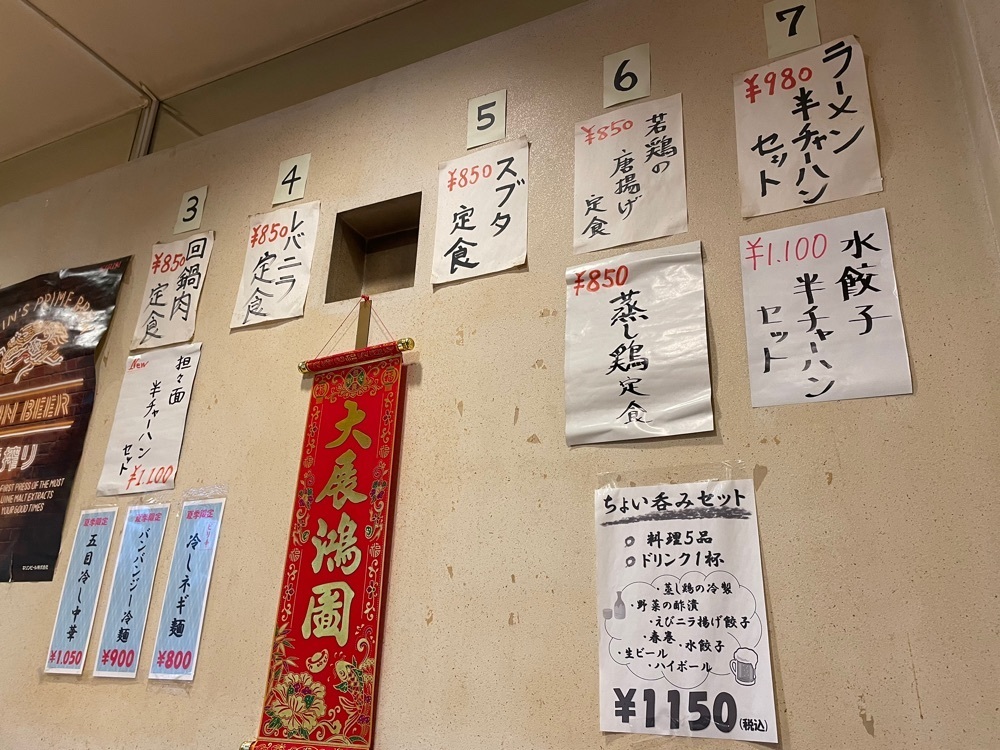 3
¥850
回鍋肉
定食
4
¥850
レバニラ
定食
5
¥850
スブタ
定食
6
¥850
若鶏の
唐揚げ
定食
7
¥980
ラーメン
半チャーハン
セット
¥850
蒸し鶏定食
¥1.100
水餃子
半チャーハン
セット
New
担々面
半チャーハン
セット
¥1.100
夏季限定
五目冷し中華
¥1.050
夏季限定
バンバンジー冷麺
¥900
夏季限定
冷しネギ麺
¥800
大展鴻圖
ちょい呑みセット
○ 料理5品
○ ドリンク1杯
・蒸し鶏の冷製
・野菜の酢漬
・えびニラ揚げ餃子
・春巻 ・水餃子
・生ビール
・ハイボール
¥1150(税込)
BEER
搾り
FIRST PRESS OF THE MOST
MALT EXTRACTS
YOUR GOOD TIMES